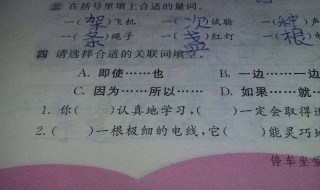 三 在括号里填上合适的量词。
一(架)飞机 一(次)试验 一(种)声
一(条)绳子 一(盏)红灯 一(根)
四 请选择合适的关联词填空。
A. 即使……也 B. 一边……一边
C. 因为……所以…… D. 如果……就…
1. 你( )认真地学习,( )一定会取得
2. ( )一根极细的电线,它( )能灵巧地
停车坐爱